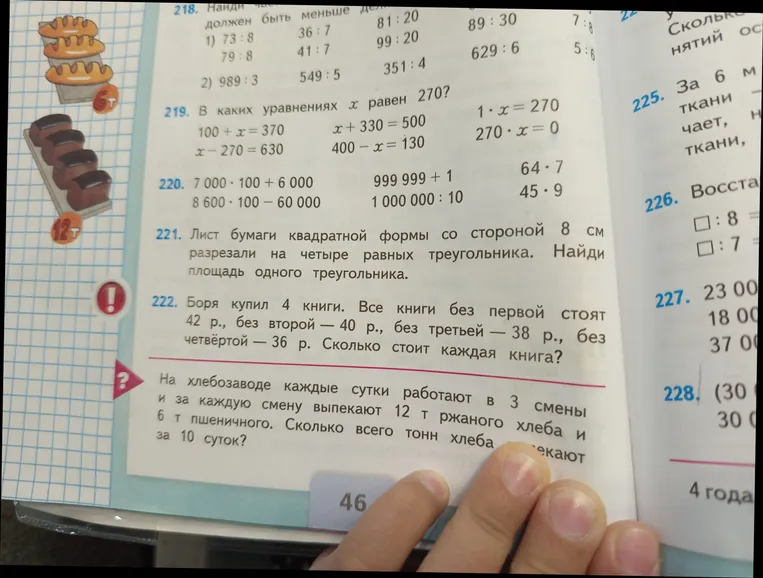 218. Найди
должен быть меньше
1) 73 : 8 36 : 7 81 : 20 89 : 30 7 : 8
79 : 8 41 : 7 99 : 20
2) 989 : 3 549 : 5 351 : 4 629 : 6 5 : 6
6 т
219. В каких уравнениях x равен 270?
100 + x = 370 x + 330 = 500 1 · x = 270
x − 270 = 630 400 − x = 130 270 · x = 0
12 т
220. 7 000 · 100 + 6 000 999 999 + 1 64 · 7
8 600 · 100 − 60 000 1 000 000 : 10 45 · 9
221. Лист бумаги квадратной формы со стороной 8 см
разрезали на четыре равных треугольника. Найди
площадь одного треугольника.
!
222. Боря купил 4 книги. Все книги без первой стоят
42 р., без второй — 40 р., без третьей — 38 р., без
четвёртой — 36 р. Сколько стоит каждая книга?
?
На хлебозаводе каждые сутки работают в 3 смены
и за каждую смену выпекают 12 т ржаного хлеба и
6 т пшеничного. Сколько всего тонн хлеба екают
за 10 суток?
46
Сколько
нятий ос
225. За 6 м
ткани —
чает, н
ткани,
226. Восста
□ : 8 =
□ : 7 =
227. 23 00
18 00
37 00
228. (30
30 0
4 года